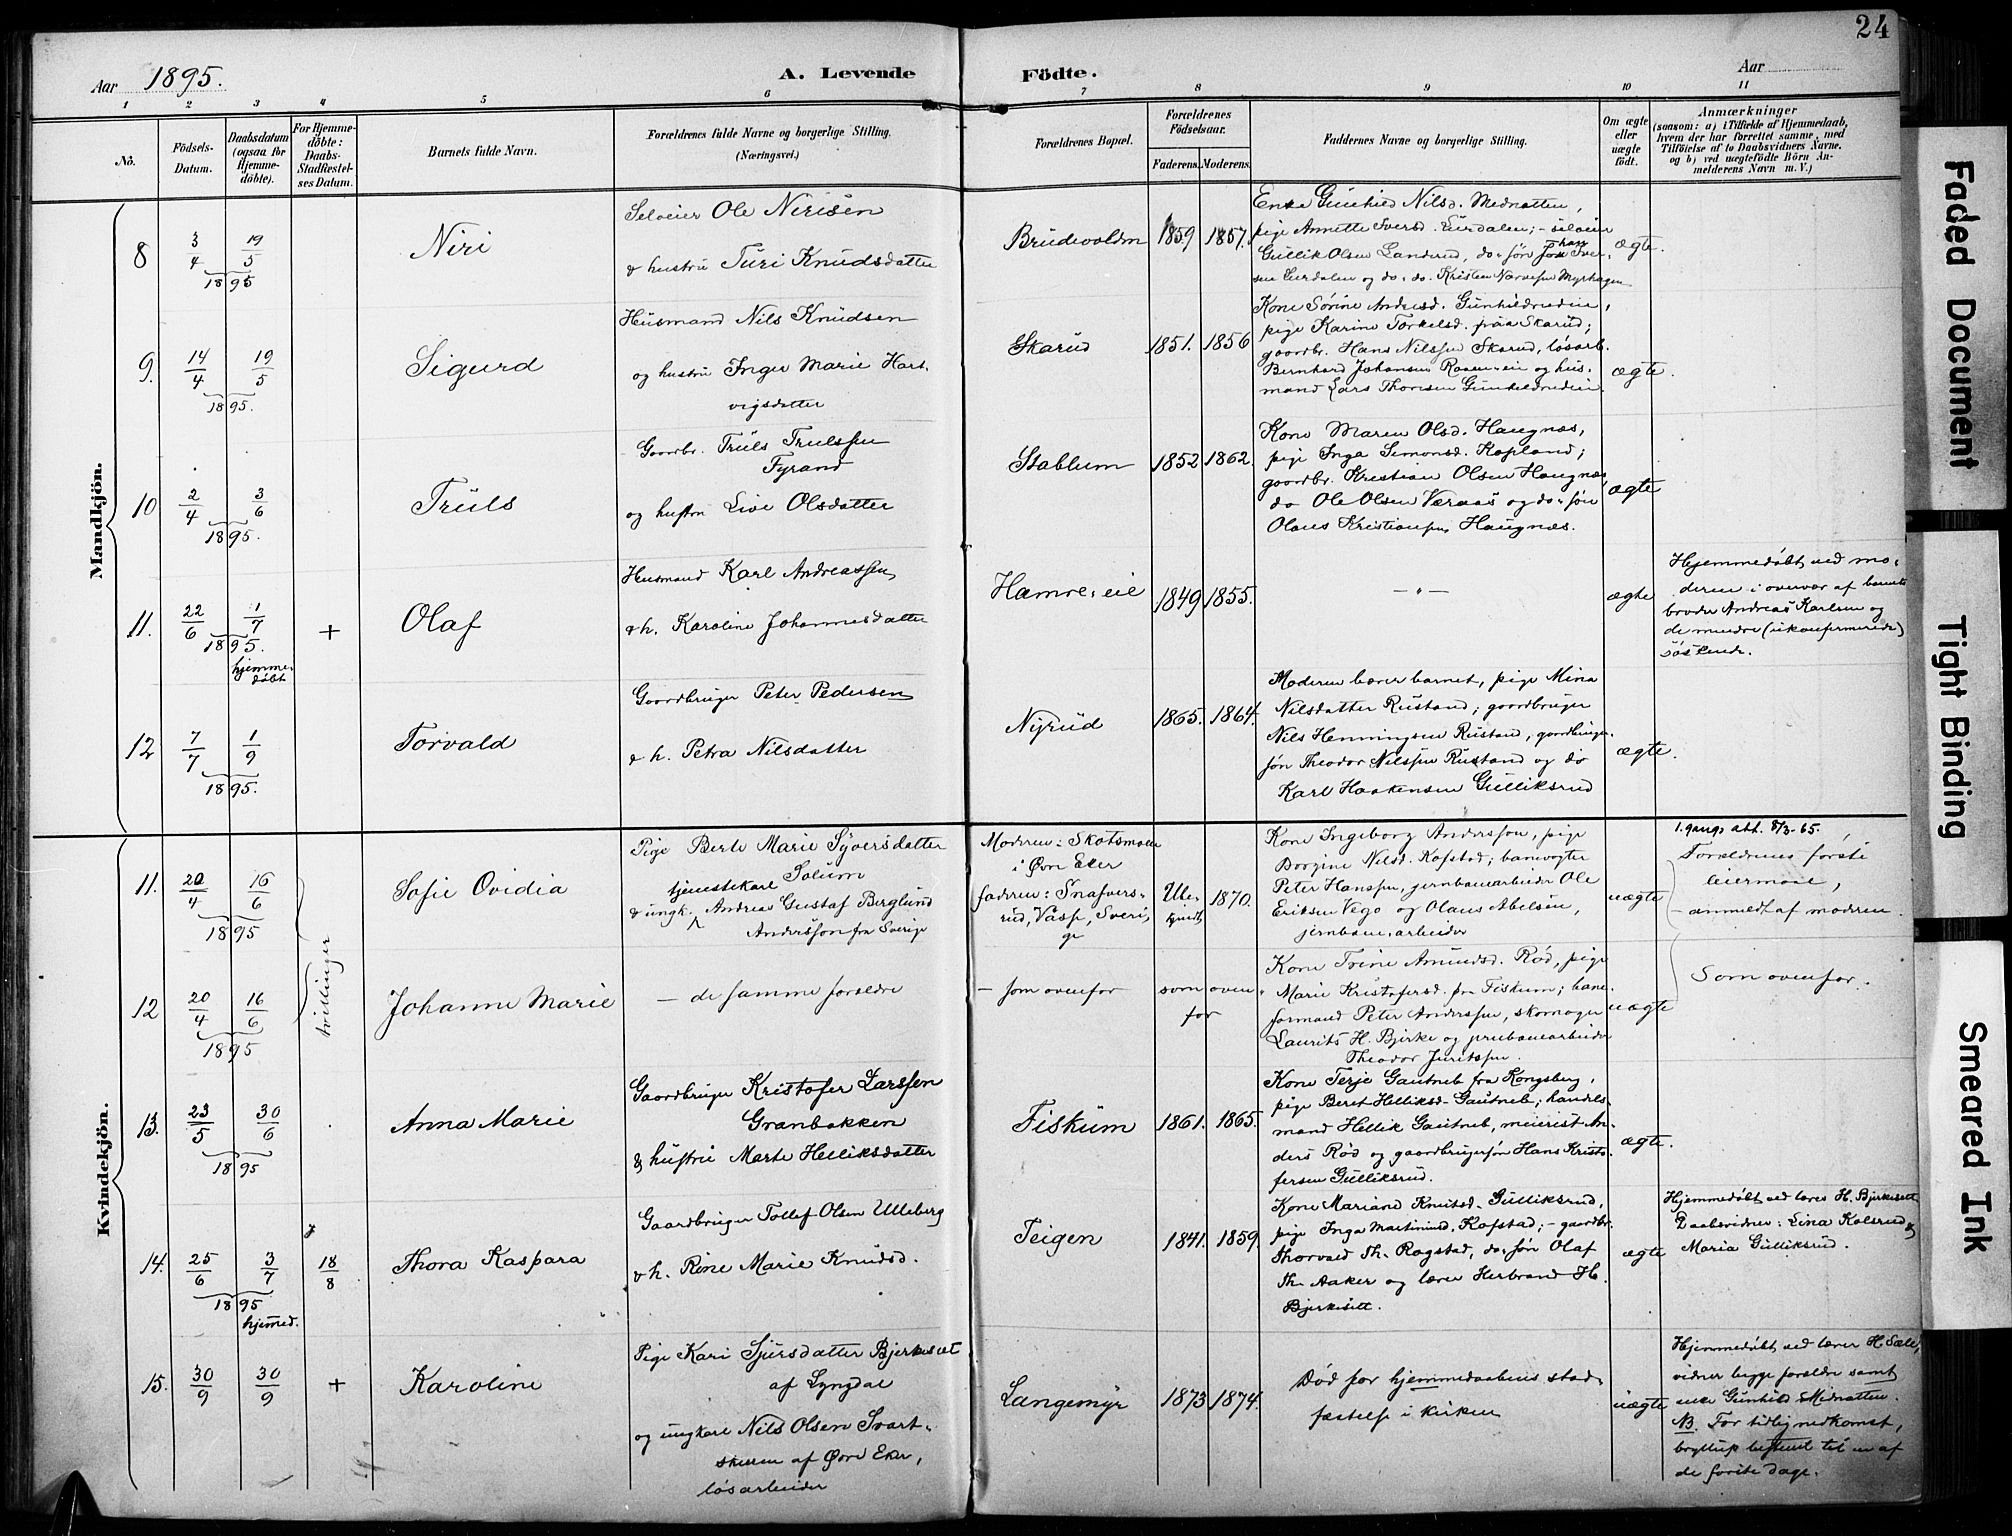 24
Aar 1895.
A. Levende
Födte.
Aar
1 2 3 4 5 6 7 8 9 10 11
No.
Födsels-
Datum.
Daabsdatum
(ogsaa for
Hjemme-
döbte).
For Hjemme-
döbte:
Daabs-
Stadfæstel-
ses Datum.
Barnets fulde Navn.
Forældrenes fulde Navne og borgerlige Stilling.
(Næringsvei.)
Forældrenes Bopæl.
Forældrenes
Födselsaar.
Faderens. Moderens.
Faddernes Navne og borgerlige Stilling.
Om ægte
eller
uægte
födt.
Anmærkninger
(saasom: a) i Tilfælde af Hjemmedaab,
hvem der har forrettet samme, med
Tilföielse af to Daabsvidners Navne.
og b) ved uægtefödte Börn An-
melderens Navn m. V.)
Mandkjön.
8
3/4
19/5
1895
Niri
Selveier Ole Nirisen
& hustru Turi Knudsdatter
Brudevoldm
1859
1857.
Enke Gunhild Nilsd. Mednatten,
pige Annette Iversd. Lurdalen; - selveier
Gullik Olsen Landerud, do. søn Iver-
sen Lurdalen og do. do. Kristen Narvesen Myrhagen
ægte.
9.
14/4
19/5
1895.
Sigurd
Husmand Nils Knudsen
og hustru Inger Marie Hart-
vigsdatter
Skarud
1851.
1856
Kone Sörine Andersd. Gunhildrudeie,
pige Karine Torkelsd. fraa Skarud;
gaardbr. Hans Nilssen Skarud, løsarb.
Bernhard Johansen Rosen-eie og hus-
mand Lars Thoresen Gunhildrudeie
ægte.
10
2/4
3/6
1895.
Truls
Gaardbr. Truls Trulssen
Fyrand
og hustru Live Olsdatter
Stablum
1852
1862.
Kone Maren Olsd. Haugnæs,
pige Inga Simonsd. Kopland;
gaardbr. Kristian Olsen Haugnæs,
do Ole Olsen Væraas og do. søn
Olaus Kristiansen Haugnæs.
ægte
11.
22/6
1/7
1895.
hjemme-
døbt
+
Olaf
Husmand Karl Andreassen
& h. Karoline Johannesdatter
Hamre, eie
1849
1855.
— „ —
ægte
Hjemmedøbt ved mo-
deren i overvær af barnets
broder Andreas Karlsen og
de mindre (ukonfirmerede)
søskende.
12
7/7
1/9
1895.
Torvald
Gaardbruger Peter Pedersen
& h. Petra Nilsdatter
Nyrud
1865.
1864.
Moderen bærer barnet, pige Mina
Nilsdatter Rustand; gaardbruger
Nils Henningsen Rustand, gaardbruger-
søn Theodor Nilssen Rustand og do
Karl Haakensen Gulliksrud
ægte.
Kvindekjön.
11.
20/4
16/6
1895
tvillinger
Sofie Ovidia
Pige Berte Marie Syversdatter
Solum
& ungk. tjenestekarl Andreas Gustaf Berglund
Andersson fra Sverige
Moderen: Skotsmoen
i Øvn Eker
faderen: Snafvers-
rud, Vasp, Sveri-
ge
Ube-
kjendt
1870.
Kone Ingeborg Anderssen, pige
Borgine Nilsd. Kofstad; banevogter
Peter Hanssen, jernbanearbeider Ole
Eriksen Vego og Olaus Abelsen,
jernbane-arbeider
uægte
1. gangs att. 8/3-65.
Forældrenes første
leiermaal,
- anmeldt af moderen.
12
20/4
16/6
1895
Johanne Marie
— de samme forældre
— som ovenfor
som oven-
for
Kone Trine Amundsd. Rød, pige
Marie Kristofersd. fra Fiskum; bane-
formand Peter Anderssen, skomager
Laurits H. Bjerke og jernbanearbeider
Theodor Juritssen.
uægte
Som ovenfor.
13.
23/5
30/6
1895
Anna Marie
Gaardbruger Kristofer Larssen
Granbakken
& hustru Marte Helliksdatter
Fiskum
1861.
1865.
Kone Terje Gautneb fra Kongsberg,
pige Beret Helliksd. Gautneb; handels-
mand Hellik Gautneb, meierist An-
ders Rød og gaardbrugersøn Hans Kristo-
fersen Gulliksrud.
ægte.
14.
25/6
3/7
1895
hjemmed.
18/8
Thora Kaspara
Gaardbruger Tollef Olsen Ulleberg
& h. Rine Marie Knudsd.
Teigen
1841.
1859.
Kone Mariane Knutsd. Gulliksrud,
pige Inga Martinsd. Kofstad; - gaardbr.
Thorvald Th. Rogstad, do. søn Olaf
Th. Aaker og lærer Herbrand H.
Bjerkesett.
ægte
Hjemmedøbt ved lærer H. Bjerkesett
Daabsvidner: Lina Kolsrud &
Maria Gulliksrud.
15.
30/9
30/9
+
Karoline
Pige Kari Sjursdatter Bjerkesæt
af Lyngdal
og ungkarl Nils Olsen Svart-
skuren af Øvre Eker,
løsarbeider
Langemyr
1873
1874.
Død før hjemmedaabens stad-
fæstelse i kirken
uægte
Hjemmedøbt ved lærer H. Sæle,
vidner begge forældre samt
enke Gunhild Midnatten.
NB. For tidlig nedkomst,
bryllup bestemt til en af
de første dage.
Faded Document
Tight Binding
Smeared Ink